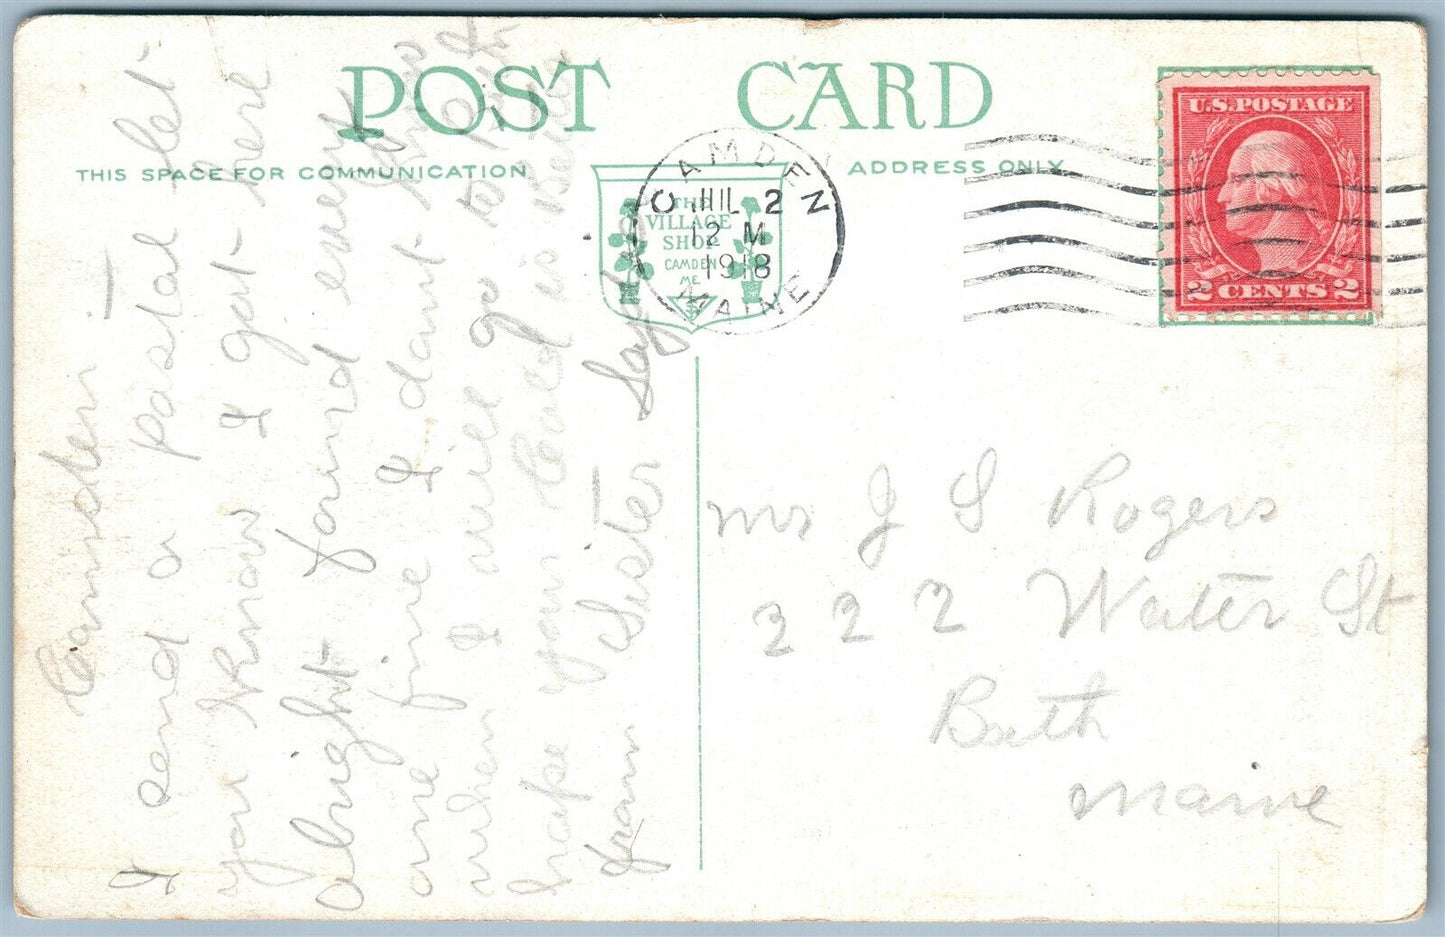 POST CARD
THIS SPACE FOR COMMUNICATION
ADDRESS ONLY
THE
VILLAGE
SHOP
CAMDEN
ME.
CAMDEN
JUL 2
12 M
1918
MAINE
U.S. POSTAGE
2 CENTS 2
Camden
I send a postal let
you know I got here
alright found every
one fine I dont know
when I will go to
hope your Cold is Better
from Sister
Mr J S Rogers
222 Water St
Bath
Maine